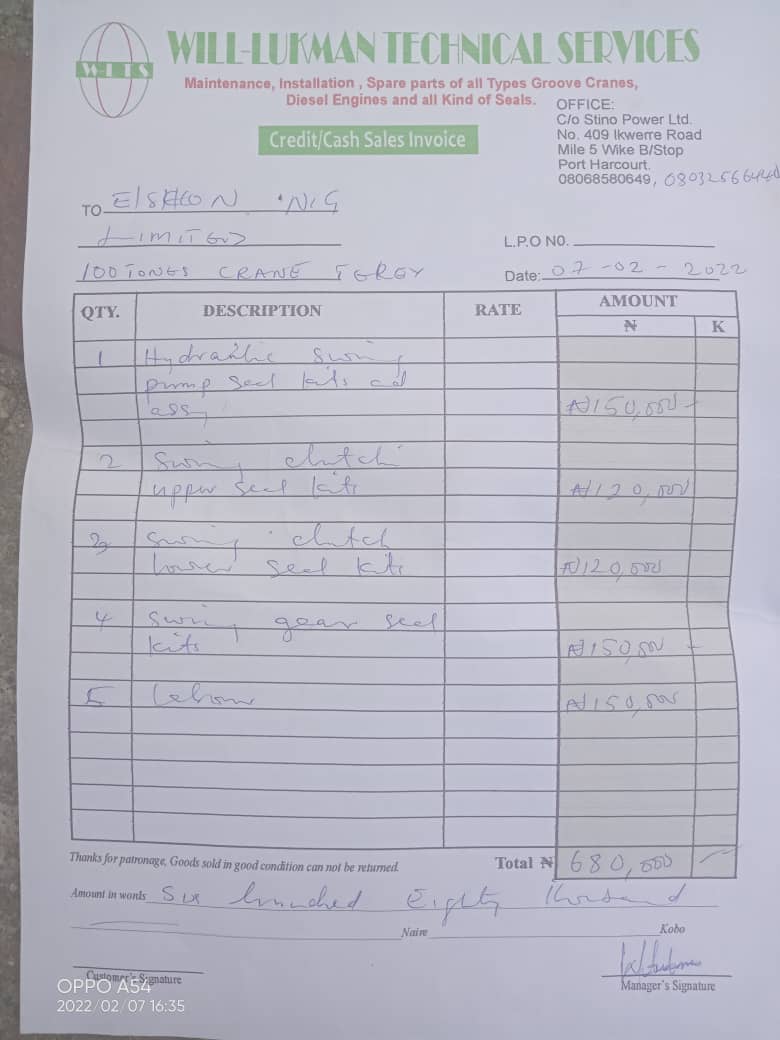 WILL-LUKMAN TECHNICAL SERVICES
WLTS
Maintenance, Installation , Spare parts of all Types Groove Cranes,
Diesel Engines and all Kind of Seals.
Credit/Cash Sales Invoice
OFFICE:
C/o Stino Power Ltd.
No. 409 Ikwerre Road
Mile 5 Wike B/Stop
Port Harcourt.
08068580649,
TO NIG
LIMITED
L.P.O NO.
100 TONES CRANE
Date: 07-02-2022
QTY. DESCRIPTION RATE AMOUNT
₦ K
1 Hydraulic Swing
pump seal kits ad
assy ₦150,000 -
2 Swing clutch
upper seal kits ₦120,000
3 Swing clutch
lower seal kits ₦120,000
4 Swing gear seal
kits ₦150,000 -
5 ₦150,000
Thanks for patronage, Goods sold in good condition can not be returned.
Total ₦ 680,000
Amount in words Six hundred Eighty
Naire Kobo
Customer's Signature
Manager's Signature
OPPO A54
2022/02/07 16:35